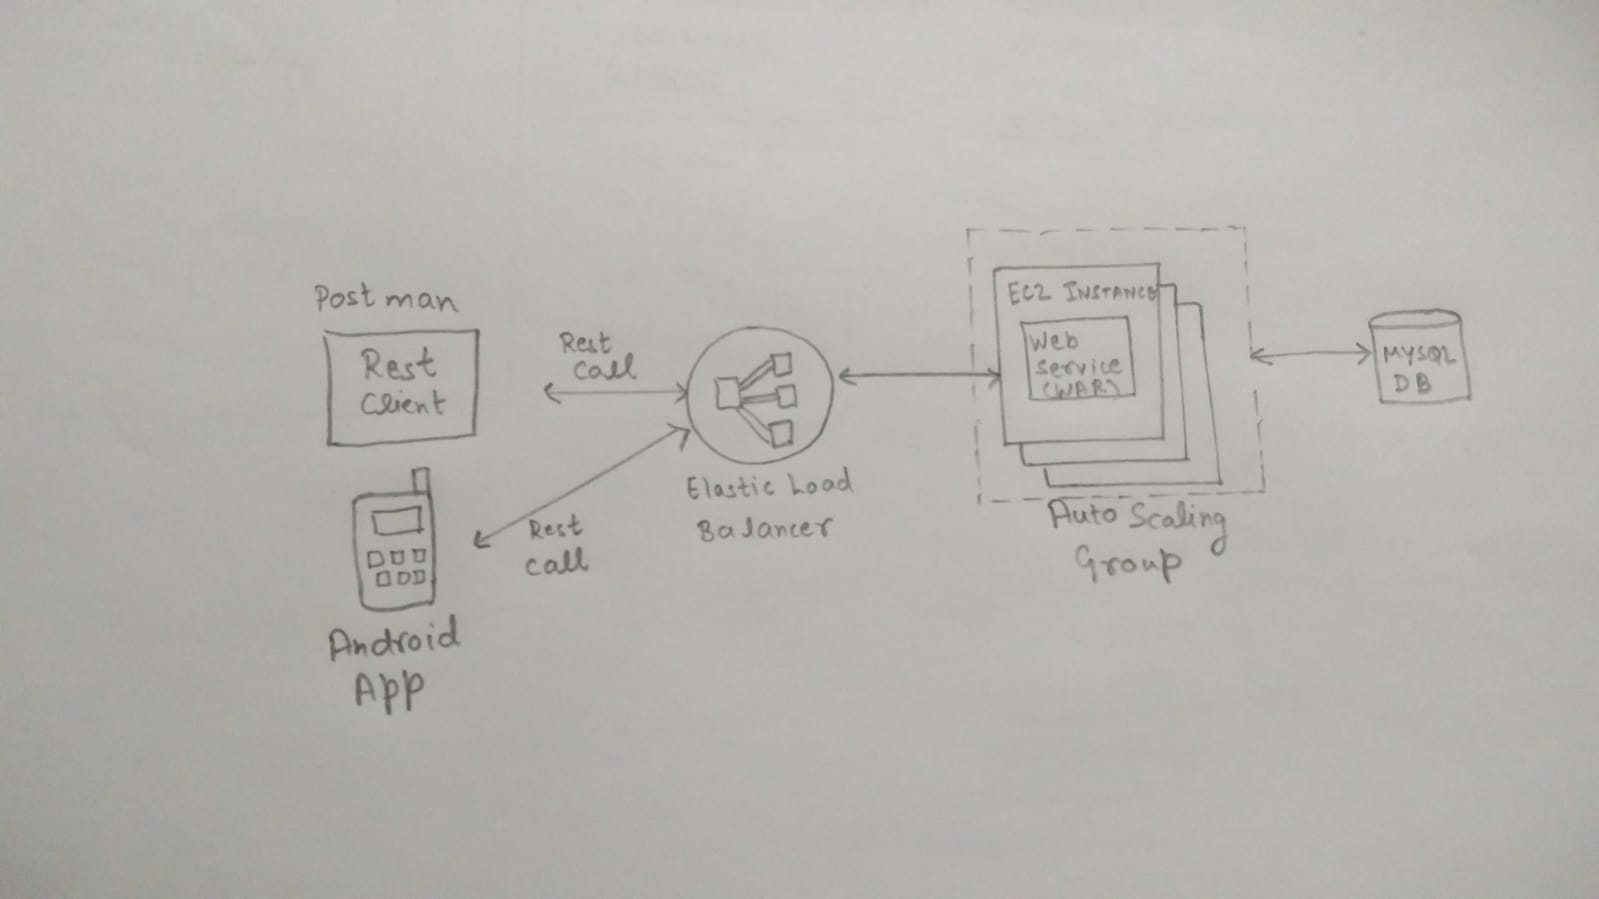 Postman
Rest
Client
Rest
call
Rest
call
Android
App
Elastic Load
Balancer
EC2 INSTANCE
Web
Service
(WAR)
Auto Scaling
Group
MYSQL
DB